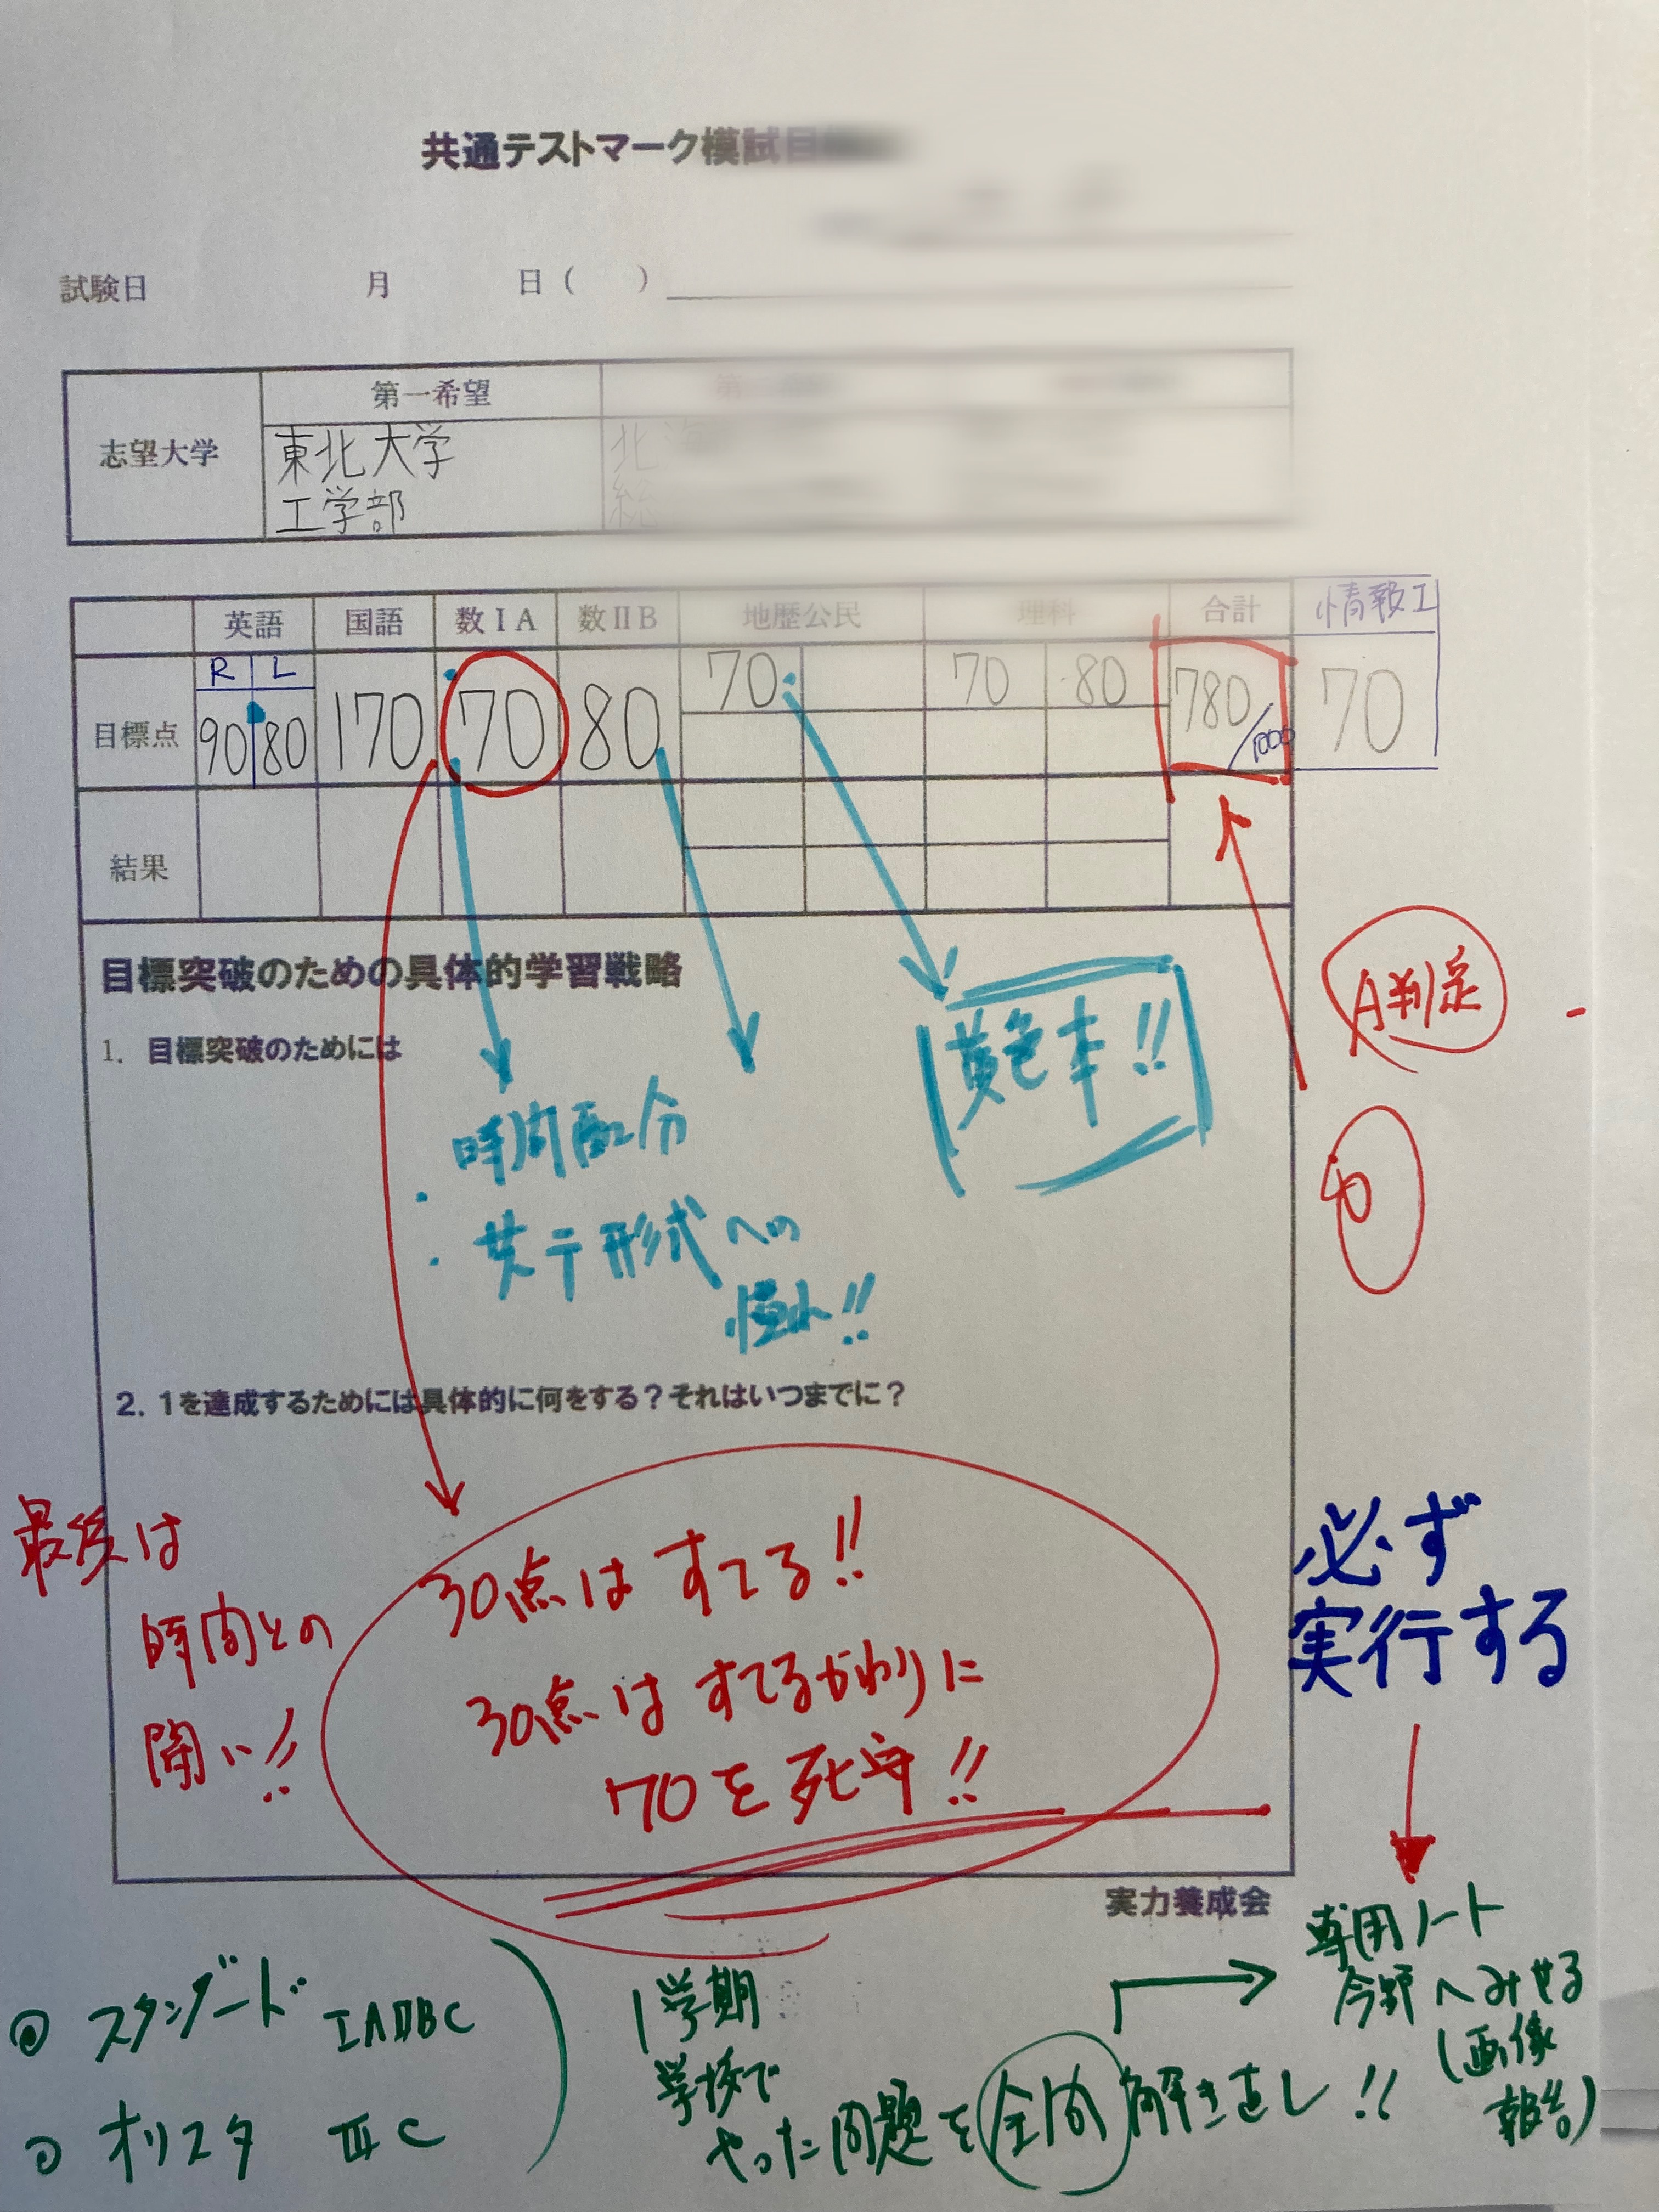 共通テストマーク模試目
試験日 月 日( )
志望大学 第一希望
東北大学
工学部
北海
総
英語 国語 数ⅠA 数ⅡB 地歴公民 理科 合計 情報I
R L
目標点 90 80 170 70 80 70 70 80 780/1000 70
結果
A判定
目標突破のための具体的学習戦略
1. 目標突破のためには
黄色本!!
・時間配分
・共テ形式への
慣れ!!
2. 1を達成するためには具体的に何をする?それはいつまでに?
最後は
時間との
闘い!!
30点は すてる!!
30点は すてるかわりに
70を死守!!
必ず
実行する
実力養成会
専用ノート
今野へみせる
(画像
報告)
◎ スタンダード ⅠAⅡBC
◎ オリスタ ⅢC
1学期
学校で
やった問題を全問解き直し!!